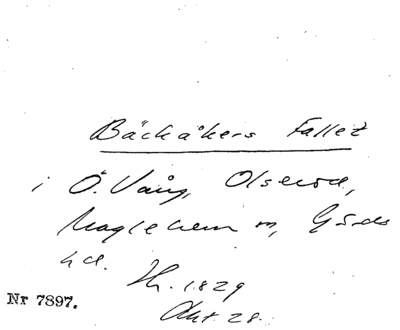 Bäckåkers Fallet
i Ö. Vång, Olseröd,
Maglehem sn, Gärds
hd. Th. 1829
Akt 28.
Nr 7897.